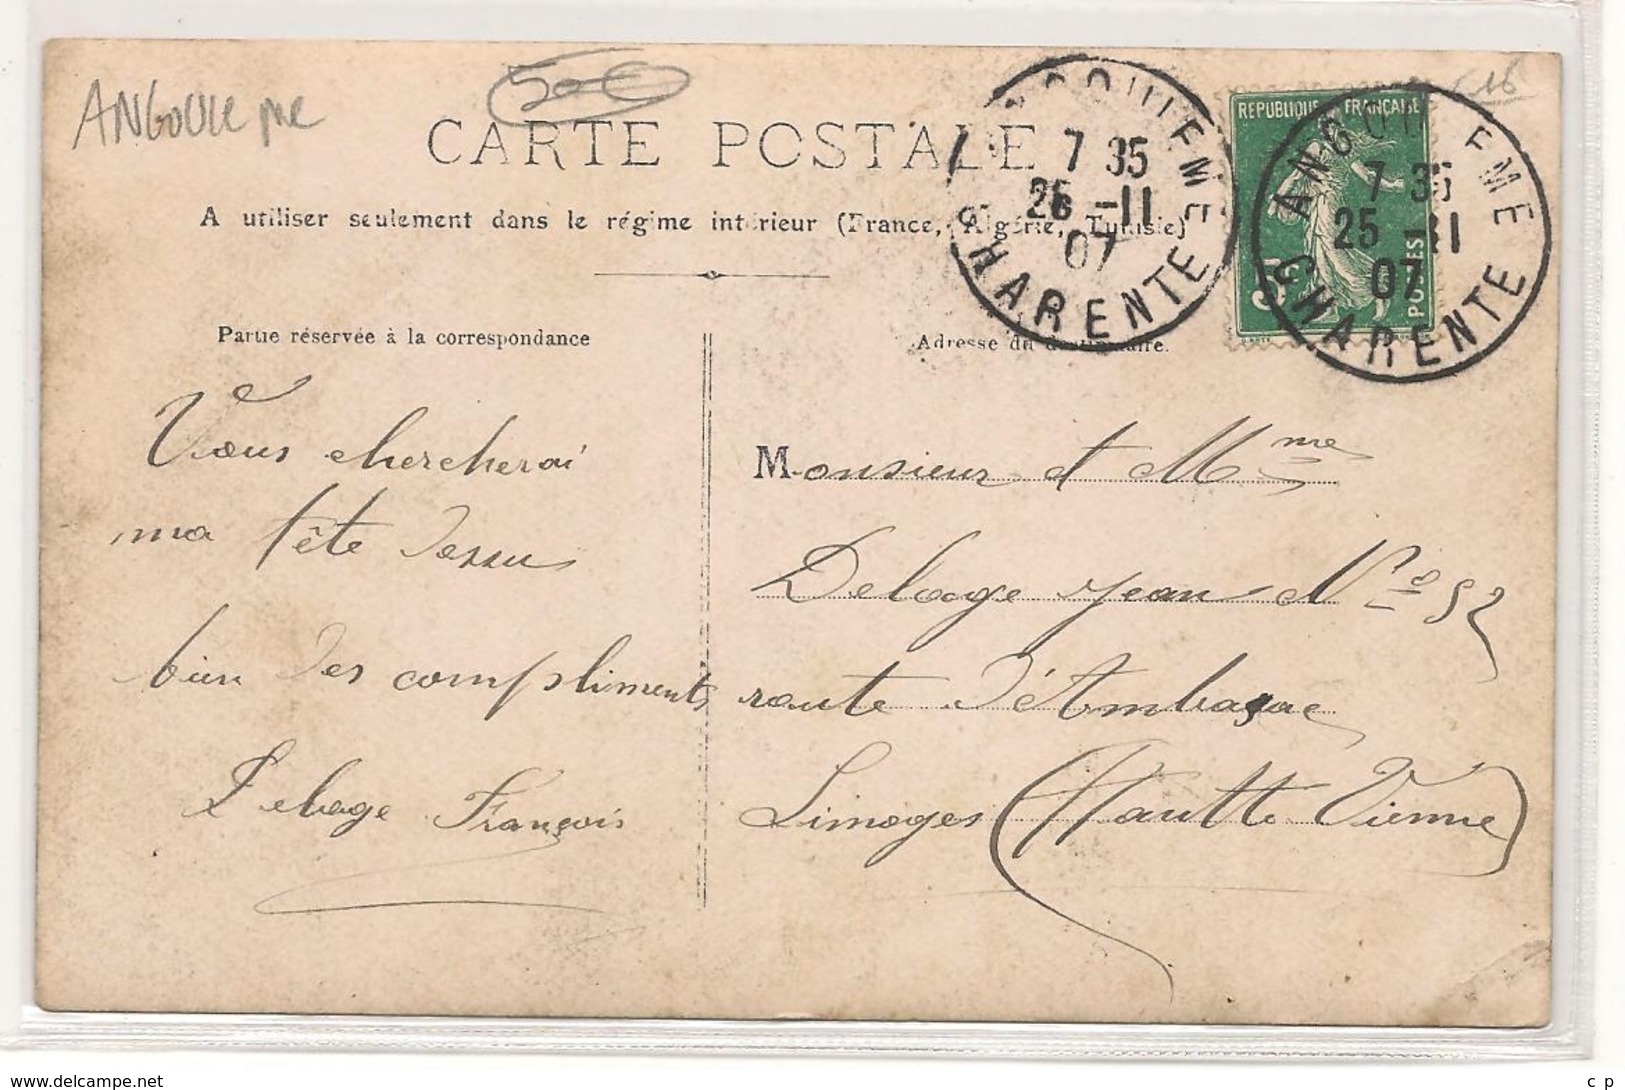 ANGOULEME
500
CARTE POSTALE
A utiliser seulement dans le régime intérieur (France, Algérie, Tunisie)
ANGOULEME
7 35
25 -11
07
CHARENTE
REPUBLIQUE FRANÇAISE
POSTES
5c
ANGOULEME
7 35
25 -11
07
CHARENTE
Partie réservée à la correspondance
Adresse du destinataire.
Vous chercherai
ma tête dessu
bien des compliments
Delage François
Monsieur et Mme
Delage Jean No 52
route d'Ambasac
Limoges (Hautte Vienne)
www.delcampe.net
c p